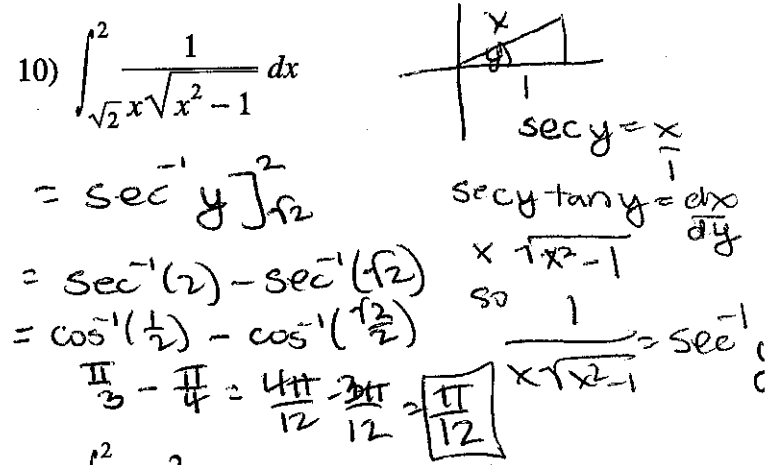 10) ∫_{√2}^{2} 1/(x√(x² - 1)) dx
x
y
1
sec y = x/1
= sec⁻¹ y ]_{√2}^{2}
sec y tan y = dx/dy
x √(x² - 1)
= sec⁻¹(2) - sec⁻¹(√2)
so
= cos⁻¹(1/2) - cos⁻¹(√2/2)
1/(x√(x² - 1)) = sec⁻¹ y
π/3 - π/4 = 4π/12 - 3π/12 = π/12
2